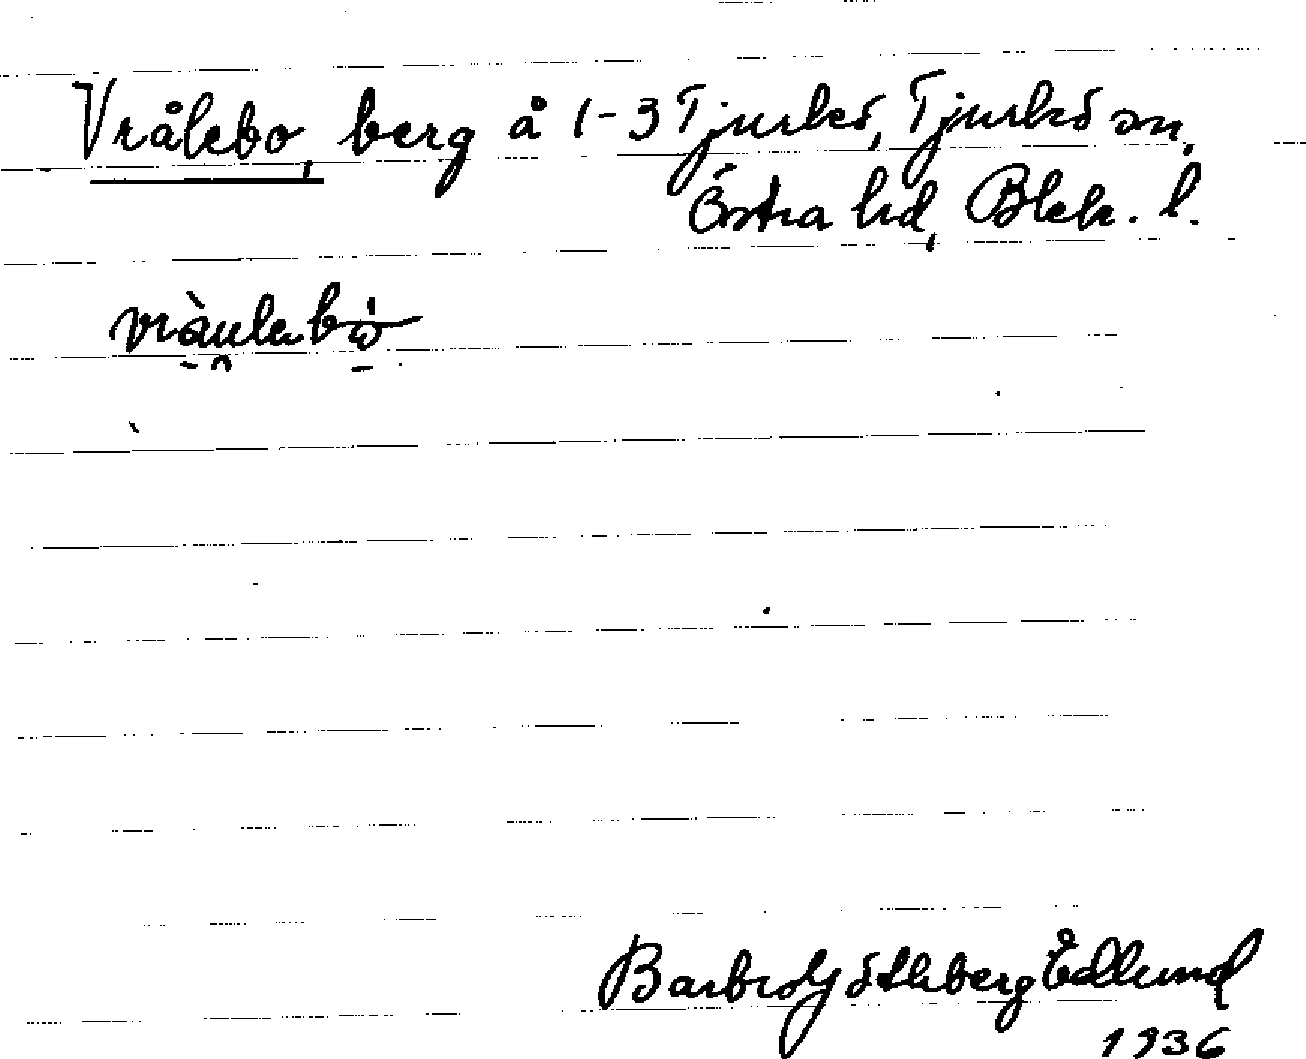 Vrålebo, berg å 1-3 Tjurkö, Tjurkö sn,
Östra hd, Blek. l.
Barbro Göthberg Edlund
1936